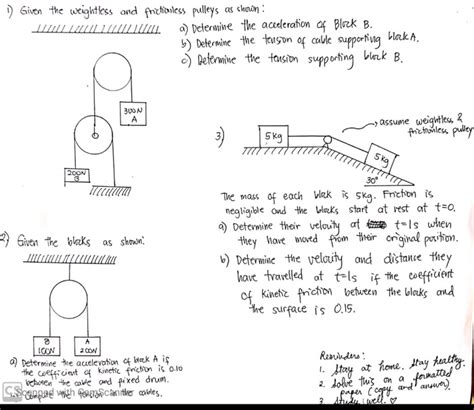 1) Given the weightless and frictionless pulleys as shown:
a) Determine the acceleration of Block B.
b) Determine the tension of cable supporting block A.
c) Determine the tension supporting block B.
300N
A
200N
B
3)
5 kg
5 kg
30°
assume weightless &
frictionless pulley
The mass of each block is 5kg. Friction is
negligible and the blocks start at rest at t=0.
a) Determine their velocity at t=1s when
they have moved from their original position.
b) Determine the velocity and distance they
have travelled at t=1s if the coefficient
of kinetic friction between the blocks and
the surface is 0.15.
2) Given the blocks as shown:
B
100N
A
200N
a) Determine the acceleration of block A if
the coefficient of kinetic friction is 0.10
between the cable and fixed drum.
the cables.
CS
Reminders:
1. Stay at home. Stay healthy.
2. Solve this on a formatted
paper (copy and answer).
3. Study well.